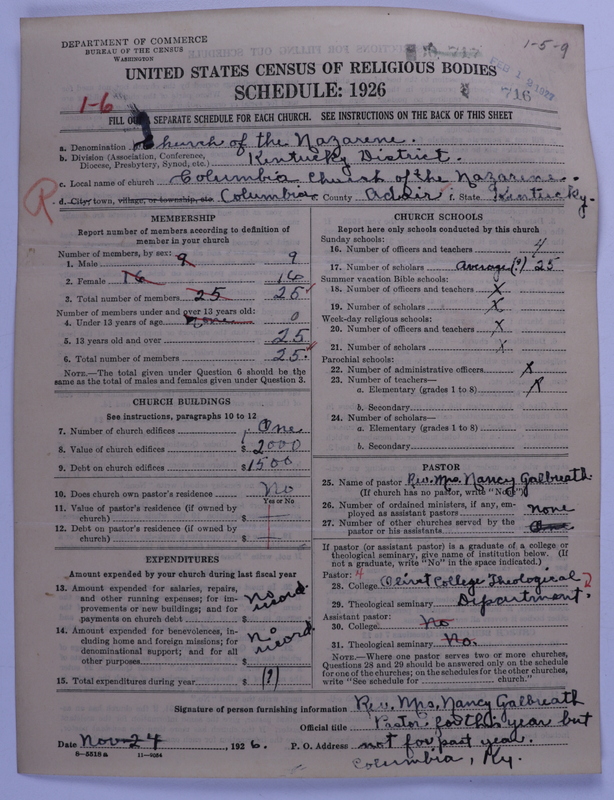 DEPARTMENT OF COMMERCE
BUREAU OF THE CENSUS
WASHINGTON
1-5-9
717
FEB 19 1927
716
UNITED STATES CENSUS OF RELIGIOUS BODIES
SCHEDULE: 1926
1-6
FILL OUT SEPARATE SCHEDULE FOR EACH CHURCH. SEE INSTRUCTIONS ON THE BACK OF THIS SHEET
a. Denomination Church of the Nazarene.
b. Division (Association, Conference, Diocese, Presbytery, Synod, etc.) Kentucky District.
c. Local name of church Columbia Church of the Nazarene.
R
d. City, town, village, or township, etc. Columbia. County Adair. State Kentucky.
MEMBERSHIP
Report number of members according to definition of member in your church
Number of members, by sex:
1. Male 9 9
2. Female 16 16
3. Total number of members 25 25
Number of members under and over 13 years old:
4. Under 13 years of age None 0
5. 13 years old and over 25
6. Total number of members 25.
NOTE.—The total given under Question 6 should be the same as the total of males and females given under Question 3.
CHURCH BUILDINGS
See instructions, paragraphs 10 to 12
7. Number of church edifices One
8. Value of church edifices $ 2000
9. Debt on church edifices $ 1500
10. Does church own pastor's residence No
Yes or No
11. Value of pastor's residence (if owned by church) $
12. Debt on pastor's residence (if owned by church) $
EXPENDITURES
Amount expended by your church during last fiscal year
13. Amount expended for salaries, repairs, and other running expenses; for improvements or new buildings; and for payments on church debt $ No record.
14. Amount expended for benevolences, including home and foreign missions; for denominational support; and for all other purposes $ No record.
15. Total expenditures during year $ (?)
CHURCH SCHOOLS
Report here only schools conducted by this church
Sunday schools:
16. Number of officers and teachers 4
17. Number of scholars average (?) 25
Summer vacation Bible schools:
18. Number of officers and teachers X
19. Number of scholars X
Week-day religious schools:
20. Number of officers and teachers X
21. Number of scholars X
Parochial schools:
22. Number of administrative officers X
23. Number of teachers—
a. Elementary (grades 1 to 8) X
b. Secondary
24. Number of scholars—
a. Elementary (grades 1 to 8)
b. Secondary
PASTOR
25. Name of pastor Rev. Mrs. Nancy Galbreath.
(If church has no pastor, write "No")
26. Number of ordained ministers, if any, employed as assistant pastors None
27. Number of other churches served by the pastor or his assistants
If pastor (or assistant pastor) is a graduate of a college or theological seminary, give name of institution below. (If not a graduate, write "No" in the space indicated.)
Pastor: 4
28. College Olivet College Theological 2
29. Theological seminary Department.
Assistant pastor:
30. College No
31. Theological seminary No.
NOTE.—Where one pastor serves two or more churches, Questions 28 and 29 should be answered only on the schedule for one of the churches; on the schedules for the other churches, write "See schedule for church."
Signature of person furnishing information Rev. Mrs. Nancy Galbreath
Official title Pastor. for this year but
Date Nov-24, 1926. P. O. Address not for past year.
8—5518 a 11—9054
Columbia, Ky.